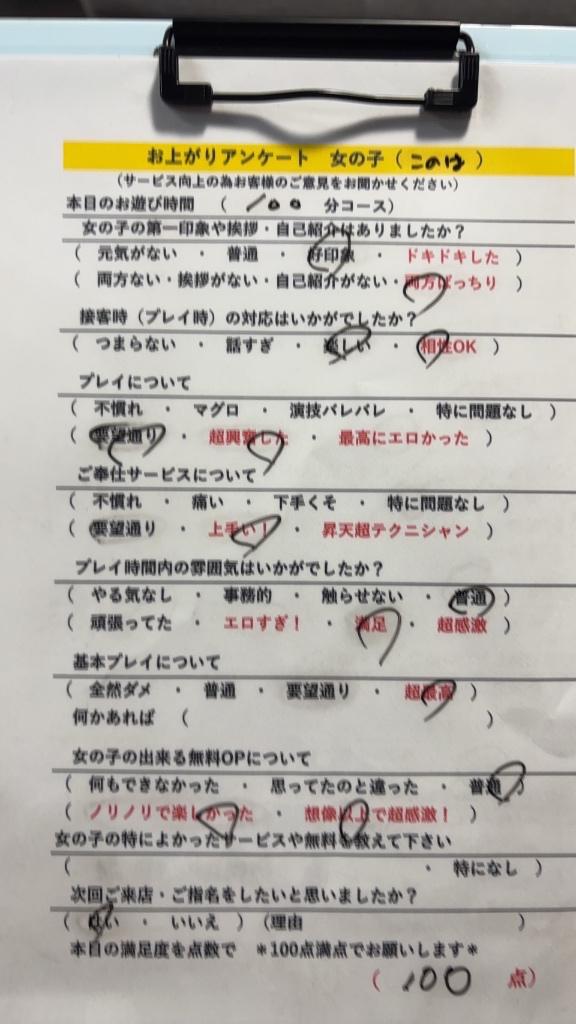 お上がりアンケート 女の子（このは）
（サービス向上の為お客様のご意見をお聞かせください）
本日のお遊び時間 （ 100 分コース）
女の子の第一印象や挨拶・自己紹介はありましたか？
（ 元気がない ・ 普通 ・ 好印象 ・ ドキドキした ）
（ 両方ない・挨拶がない・自己紹介がない・両方ばっちり ）
接客時（プレイ時）の対応はいかがでしたか？
（ つまらない ・ 話すぎ ・ 楽しい ・ 相性OK ）
プレイについて
（ 不慣れ ・ マグロ ・ 演技バレバレ ・ 特に問題なし ）
（ 要望通り ・ 超興奮した ・ 最高にエロかった ）
ご奉仕サービスについて
（ 不慣れ ・ 痛い ・ 下手くそ ・ 特に問題なし ）
（ 要望通り ・ 上手い！ ・ 昇天超テクニシャン ）
プレイ時間内の雰囲気はいかがでしたか？
（ やる気なし ・ 事務的 ・ 触らせない ・ 普通 ）
（ 頑張ってた ・ エロすぎ！ ・ 満足 ・ 超感激 ）
基本プレイについて
（ 全然ダメ ・ 普通 ・ 要望通り ・ 超最高 ）
何かあれば （ ）
女の子の出来る無料OPについて
（ 何もできなかった ・ 思ってたのと違った ・ 普通 ）
（ ノリノリで楽しかった ・ 想像以上で超感激！ ）
女の子の特によかったサービスや無料を教えて下さい
（ ・ 特になし ）
次回ご来店・ご指名をしたいと思いましたか？
（ はい ・ いいえ ）（理由 ）
本日の満足度を点数で ＊100点満点でお願いします＊
（ 100 点）